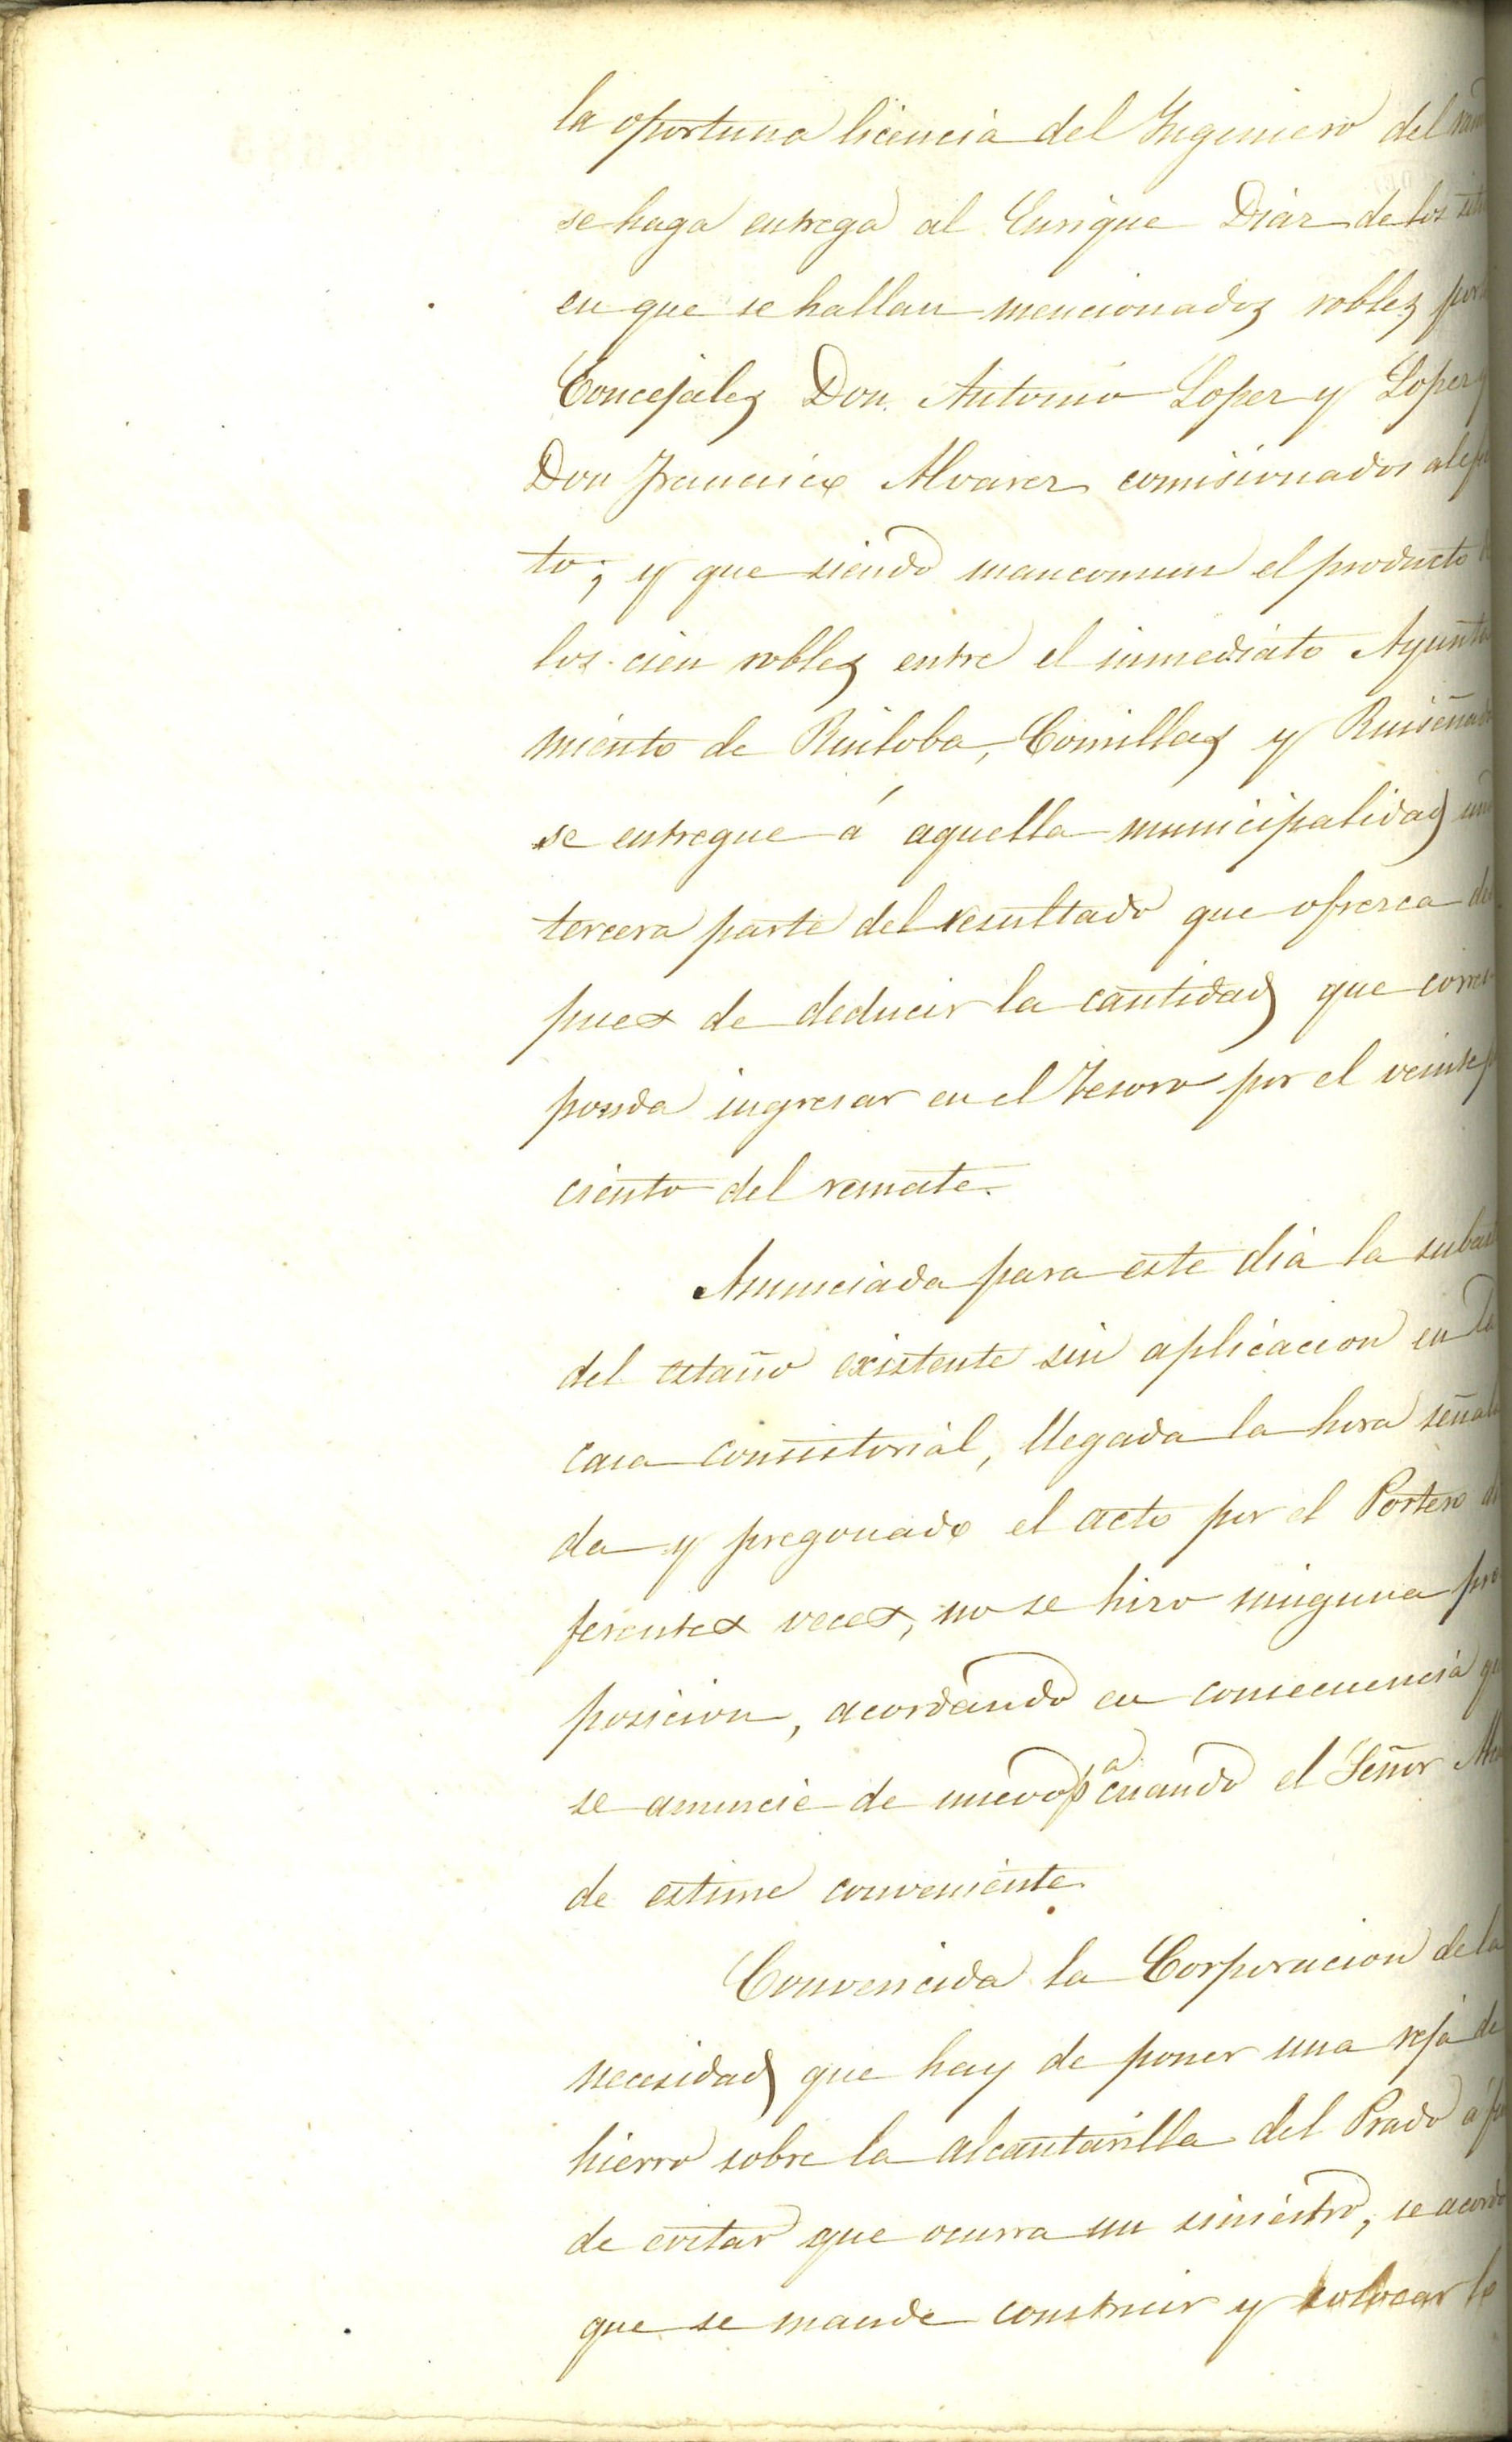 la oportuna licencia del Ingeniero del ramo
se haga entrega al Enrique Diaz de los sitios
en que se hallan mencionados robles por
Concejales Don Antonio Lopez y Lopez y
Don Francisco Alvarez comisionados al efec
to; y que siendo mancomun el producto de
los cien robles entre el inmediato Ayunta
miento de Ruiloba, Comillas y Ruiseñada
se entregue á aquella municipalidad una
tercera parte del resultado que ofrezca des
pues de deducir la cantidad que corres
ponda ingresar en el Tesoro por el veinte p
ciento del remate.
Anunciada para este dia la subasta
del estaño existente sin aplicacion en la
casa consistorial, llegada la hora señala
da y pregonado el acto por el Portero di
ferentes veces, no se hizo ninguna pro
posicion, acordando en consecuencia que
se anuncie de nuevo pa cuando el Señor Alcal
de estime conveniente.
Convencida la Corporacion de la
necesidad que hay de poner una reja de
hierro sobre la alcantarilla del Prado á fin
de evitar que ocurra un siniestro, se acordó
que se mande construir y colocar lo